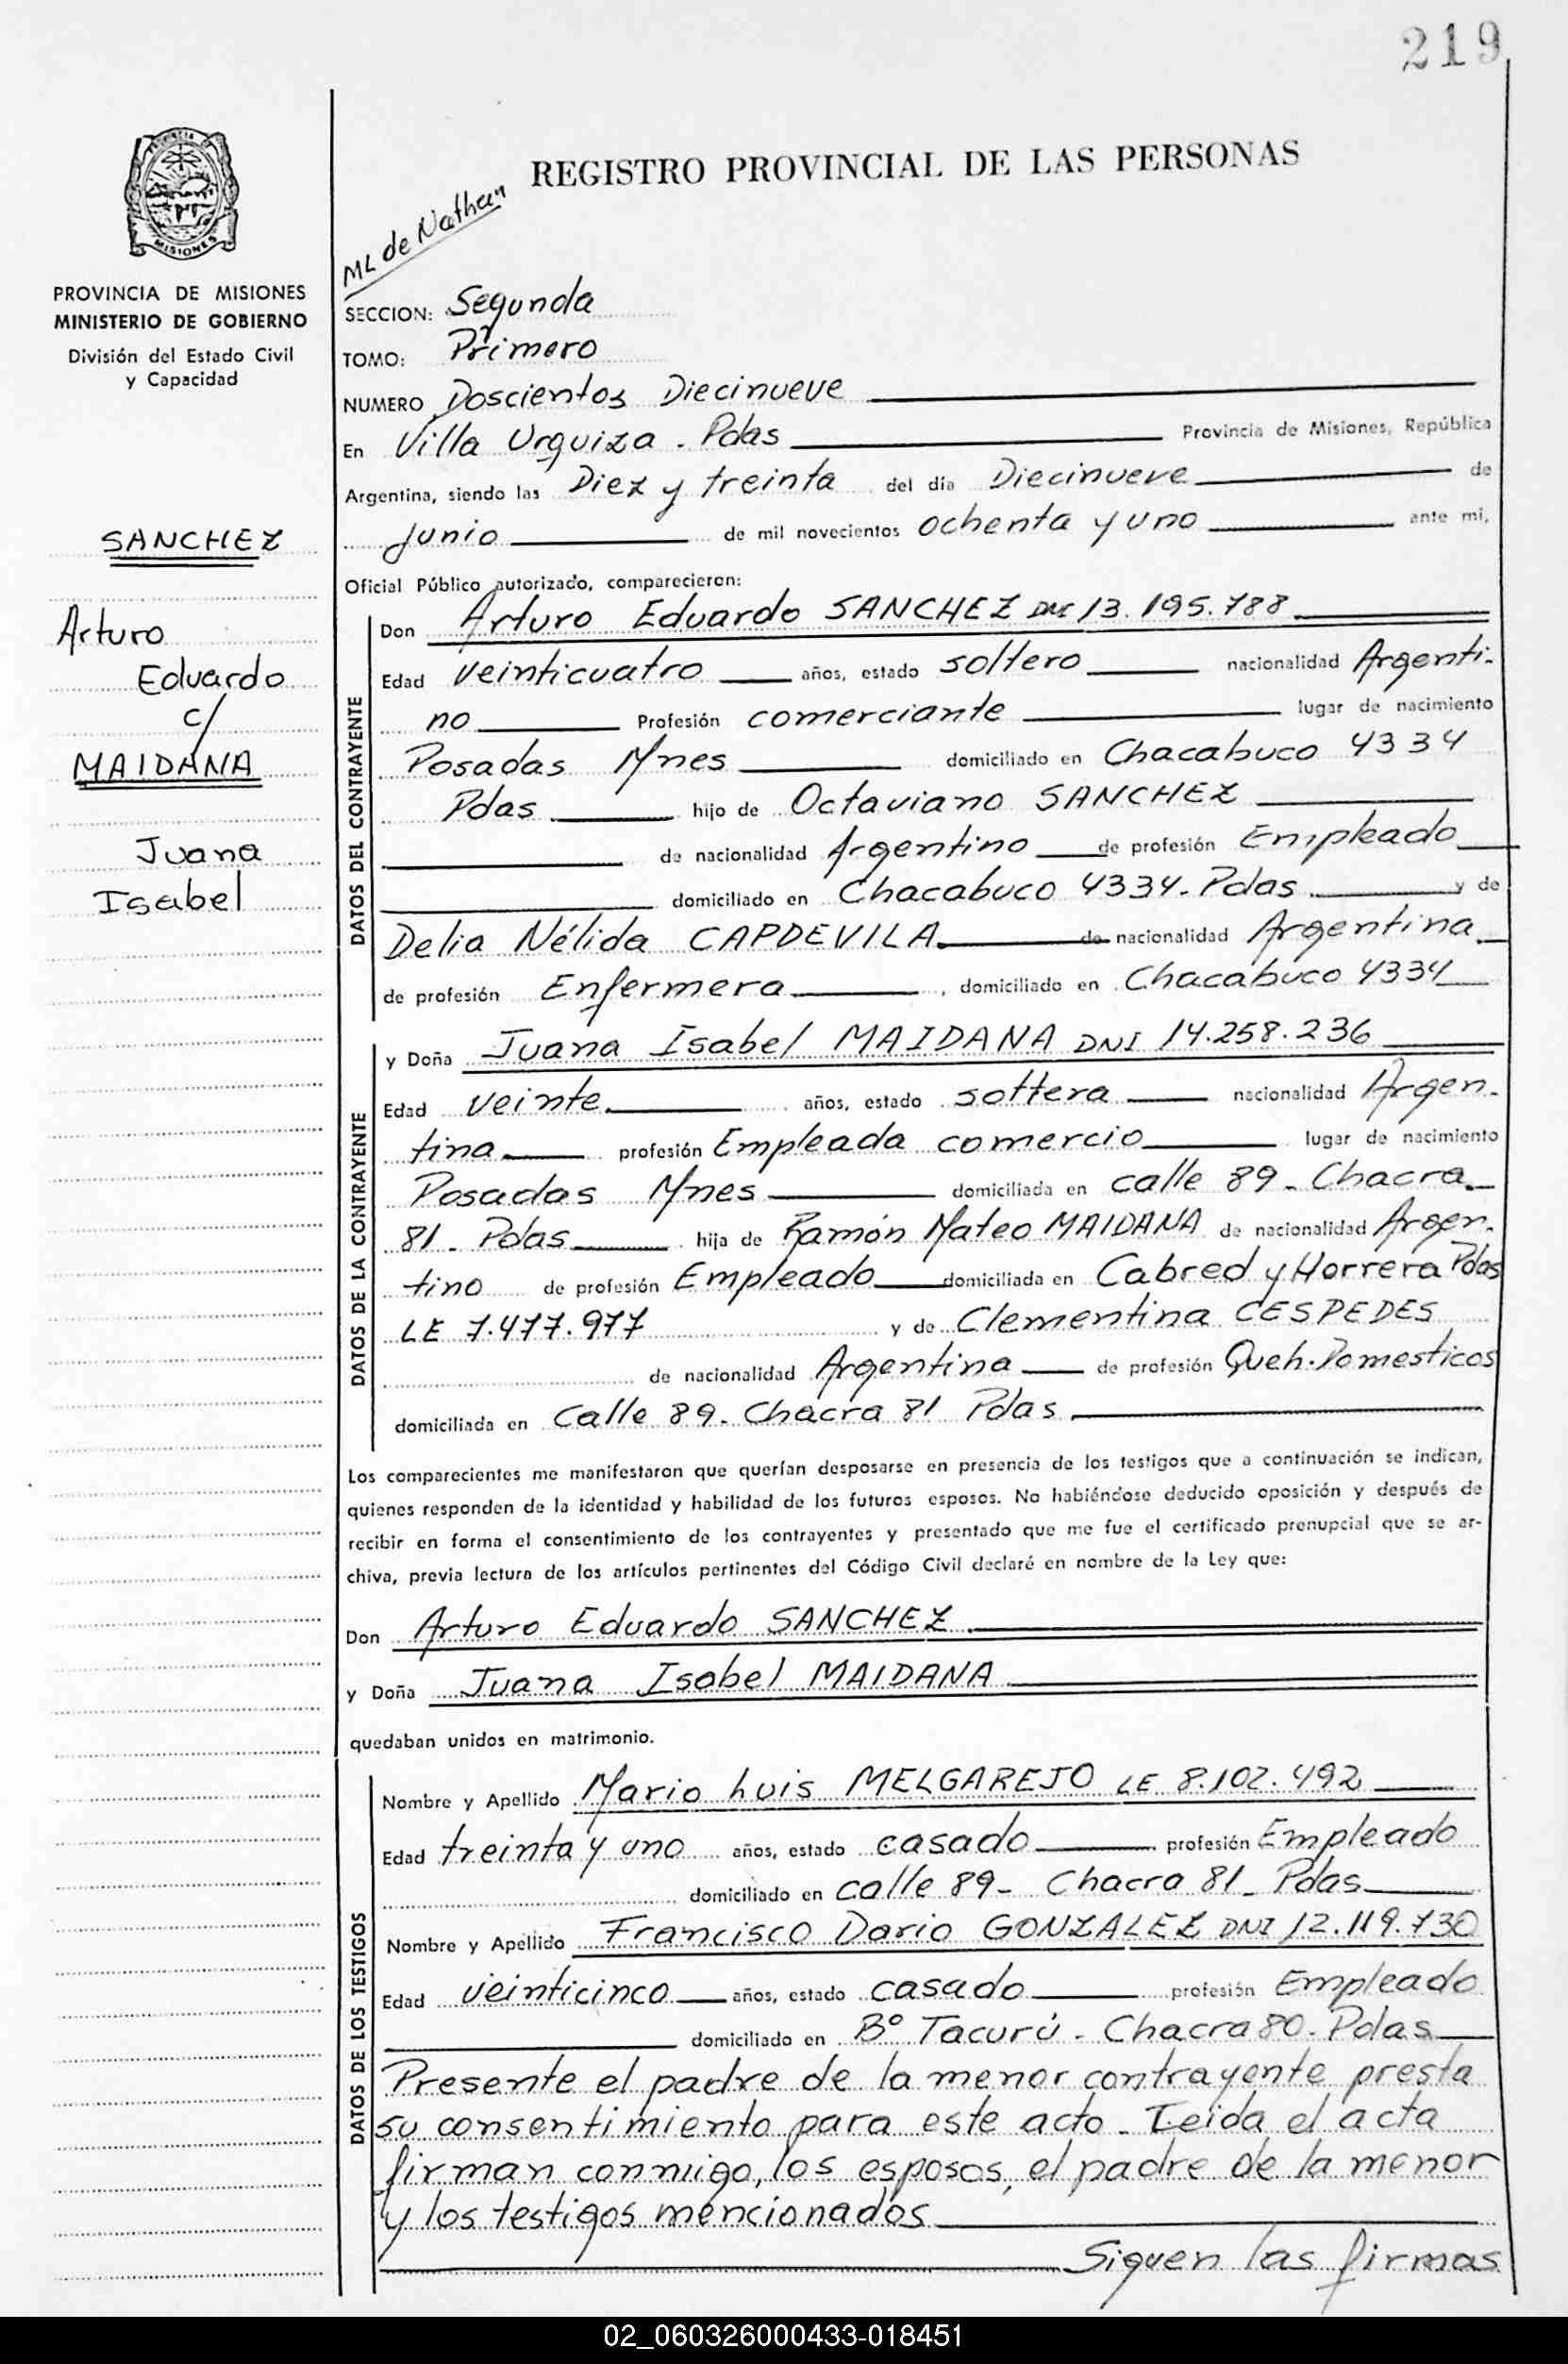 219
REGISTRO PROVINCIAL DE LAS PERSONAS
PROVINCIA
MISIONES
PROVINCIA DE MISIONES
MINISTERIO DE GOBIERNO
División del Estado Civil
y Capacidad
SANCHEZ
Arturo
Eduardo
c/
MAIDANA
Juana
Isabel
ML de Nathan
SECCION: Segunda
TOMO: Primero
NUMERO Doscientos Diecinueve
En Villa Urquiza - Pdas Provincia de Misiones, República
Argentina, siendo las Diez y treinta del día Diecinueve de
Junio de mil novecientos ochenta y uno ante mi,
Oficial Público autorizado, comparecieron:
DATOS DEL CONTRAYENTE
Don Arturo Eduardo SANCHEZ DNI 13.195.788
Edad veinticuatro años, estado soltero nacionalidad Argenti-
no Profesión comerciante lugar de nacimiento
Posadas Mnes domiciliado en Chacabuco 4334
Pdas hijo de Octaviano SANCHEZ
de nacionalidad Argentino de profesión Empleado
domiciliado en Chacabuco 4334- Pdas y de
Delia Nélida CAPDEVILA de nacionalidad Argentina
de profesión Enfermera, domiciliado en Chacabuco 4334
DATOS DE LA CONTRAYENTE
y Doña Juana Isabel MAIDANA DNI 14.258.236
Edad veinte años, estado soltera nacionalidad Argen-
tina profesión Empleada comercio lugar de nacimiento
Posadas Mnes domiciliada en calle 89 - Chacra
81 - Pdas hija de Ramón Mateo MAIDANA de nacionalidad Argen-
tino de profesión Empleado domiciliada en Cabred y Horrera Pdas
LE 7.477.977 y de Clementina CESPEDES
de nacionalidad Argentina de profesión Queh. Domesticos
domiciliada en Calle 89- Chacra 81 Pdas
Los comparecientes me manifestaron que querían desposarse en presencia de los testigos que a continuación se indican,
quienes responden de la identidad y habilidad de los futuros esposos. No habiéndose deducido oposición y después de
recibir en forma el consentimiento de los contrayentes y presentado que me fue el certificado prenupcial que se ar-
chiva, previa lectura de los artículos pertinentes del Código Civil declaré en nombre de la Ley que:
Don Arturo Eduardo SANCHEZ
y Doña Juana Isabel MAIDANA
quedaban unidos en matrimonio.
DATOS DE LOS TESTIGOS
Nombre y Apellido Mario Luis MELGAREJO LE 8.102.492
Edad treinta y uno años, estado casado profesión Empleado
domiciliado en calle 89- Chacra 81- Pdas
Nombre y Apellido Francisco Dario GONZALEZ DNI 12.119.730
Edad veinticinco años, estado casado profesión Empleado
domiciliado en Bº Tacurú - Chacra 80- Pdas
Presente el padre de la menor contrayente presta
su consentimiento para este acto - Leida el acta
firman conmigo, los esposos, el padre de la menor
y los testigos mencionados
Siguen las firmas
02_060326000433-018451